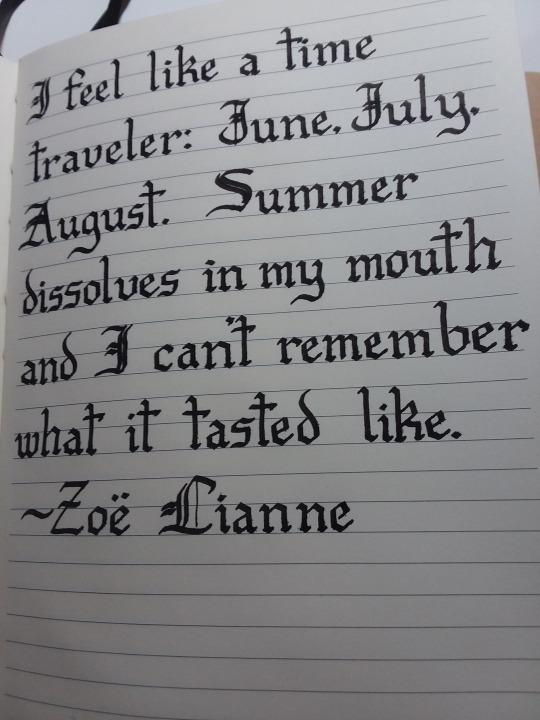 I feel like a time
traveler: June. July.
August. Summer
dissolves in my mouth
and I can't remember
what it tasted like.
~Zoë Lianne